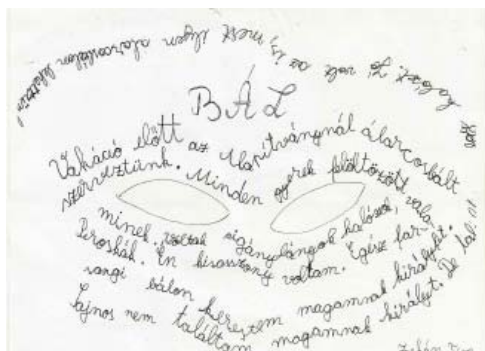 BÁL
Vakáció előtt az Alapítványnál álarcosbált
szerveztünk. Minden gyerek beöltözött vala-
minek. voltak cigánylányok kalózok,
Piroskák. Én kisasszony voltam. Egész far-
sangi bálon kerestem magamnak királyfit.
Sajnos nem találtam magamnak királyfit. De talá
jó volt az is, mert ilyen álarcosbálon